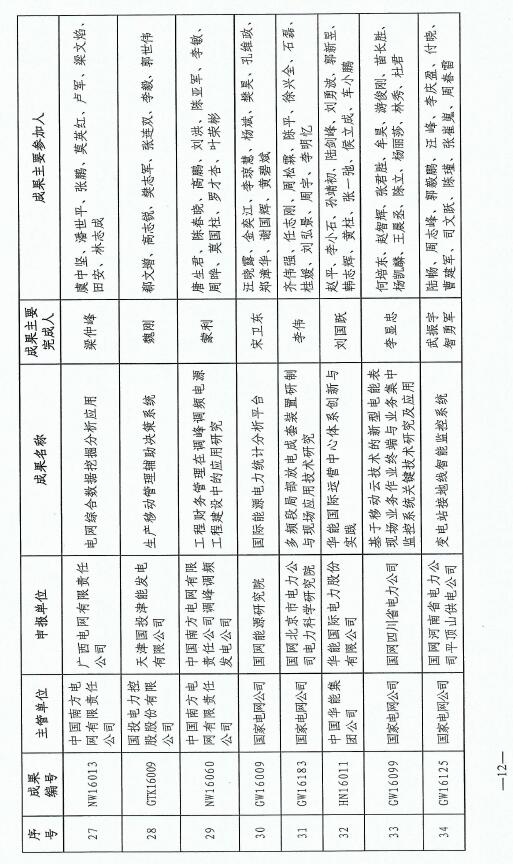 序号 成果编号 主管单位 申报单位 成果名称 成果主要完成人 成果主要参加人
27 NW16013 中国南方电网有限责任公司 广西电网有限责任公司 电网综合数据挖掘分析应用 梁仲峰 虞中坚、潘世平、张鹏、莫英红、卢军、梁文焰、田安、林志成
28 GTK16009 国投电力控股股份有限公司 天津国投津能发电有限公司 生产移动管理辅助决策系统 魏刚 郗文增、高志锐、樊志军、张连双、李毅、郭世伟
29 NW16060 中国南方电网有限责任公司 中国南方电网有限责任公司调峰调频发电公司 工程财务管理在调峰调频电源工程建设中的应用研究 蒙利 唐生君、陈春晓、高鹏、刘洪、陈亚军、李敏、周晔、莫国柱、罗才杏、叶荣彬
30 GW16009 国家电网公司 国网能源研究院 国际能源电力统计分析平台 宋卫东 汪晓露、金奕江、李琼慧、杨斌、樊昊、孔维政、郑漳华、谢国辉、黄碧斌
31 GW16183 国家电网公司 国网北京市电力公司电力科学研究院 多频段局部放电成套装置研制与现场应用技术研究 李伟 齐伟强、任志刚、周松霖、陈平、徐兴全、石磊、桂媛、刘弘景、周宇、李明忆
32 HN16011 中国华能集团公司 华能国际电力股份有限公司 华能国际运营中心体系创新与实践 刘国跃 赵平、李小石、孙靖初、陆剑峰、刘勇波、郭新昱、韩志辉、黄柱、张一弛、侯立成、车小鹏
33 GW16099 国家电网公司 国网四川省电力公司 基于移动云技术的新型电能表现场业务作业终端与业务集中监控系统关键技术研究及应用 李显忠 何培东、赵智辉、张君胜、牟昊、游俊刚、苗长胜、杨凯麟、王晨丞、陈立、杨丽莎、林秀、杜君
34 GW16125 国家电网公司 国网河南省电力公司平顶山供电公司 变电站接地线智能监控系统 武振宇 智勇军 陆畅、周志峰、郭毅鹏、汪峰、李庆盈、付晓、曹建军、司文跃、陈瑾、张崔嵬、周春雷
—12—